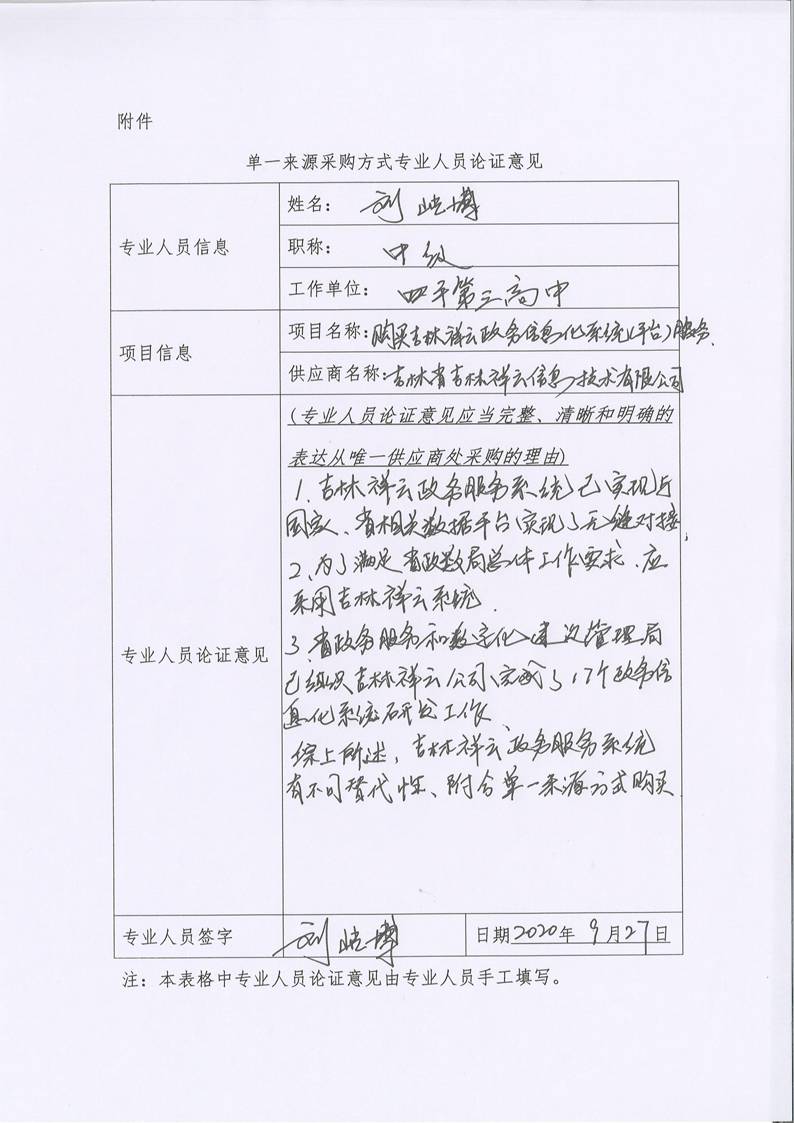 附件
单一来源采购方式专业人员论证意见
专业人员信息
姓名： 刘屹博
职称： 中级
工作单位： 四平第三高中
项目信息
项目名称：购买吉林祥云政务信息化系统(平台)服务.
供应商名称：吉林省吉林祥云信息技术有限公司
专业人员论证意见
(专业人员论证意见应当完整、清晰和明确的
表达从唯一供应商处采购的理由)
1、吉林祥云政务服务系统已实现与
国家、省相关数据平台实现了无缝对接,
2、为了满足省政数局总体工作要求、应
采用吉林祥云系统.
3、省政务服务和数字化建设管理局
已组织吉林祥云公司、完成了17个政务信
息化系统研发工作、
综上所述，吉林祥云政务服务系统
有不可替代性、附合单一来源方式购买.
专业人员签字
刘屹博
日期2020年 9月27日
注：本表格中专业人员论证意见由专业人员手工填写。